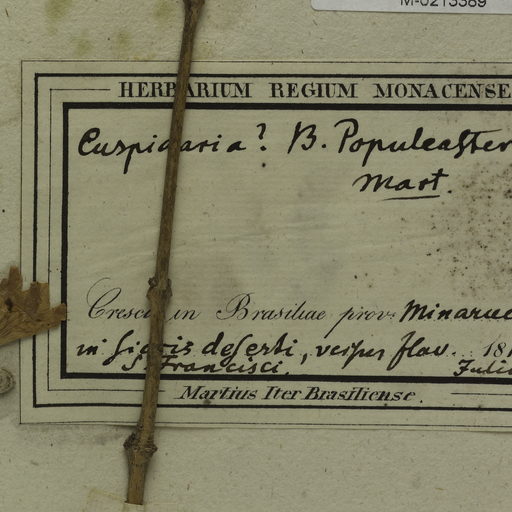 M-0213389
HERBARIUM REGIUM MONACENSE
Cuspidaria? B. Populeaster
Mart.
Crescit in Brasiliae prov: Minarum
in siccis deserti, versus flav. 181
S. Francisci. Julio
Martius Iter Brasiliense.